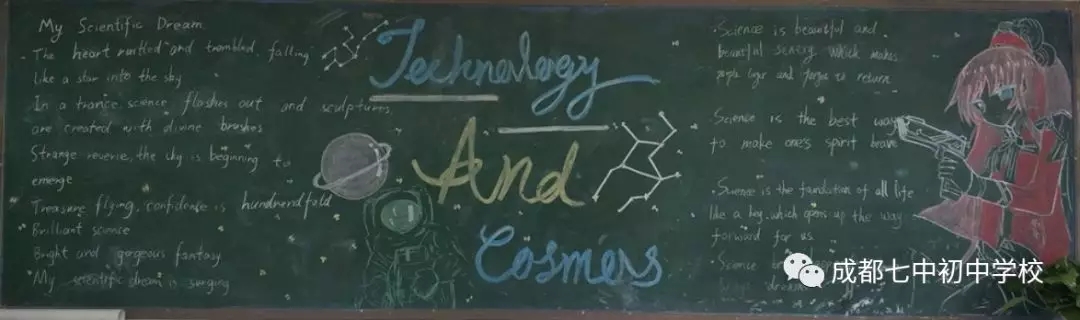 My Scientific Dream
The heart rustled and trembled, falling
Like a star into the sky
In a trance, science flashes out and sculptures
are created with divine brushes
Strange reverie, the sky is beginning to
emerge
Treasure flying, confidence is hundrendfold
Brilliant science
Bright and gorgeous fantasy
My scientific dream is surging
Technology
And
Cosmers
·Science is beautiful and
beautiful which makes
people and to return
·Science is the best way
to make one's spirit brave
·Science is the foundation of all life
like a key, which opens up the way
forward for us
Science
成都七中初中学校